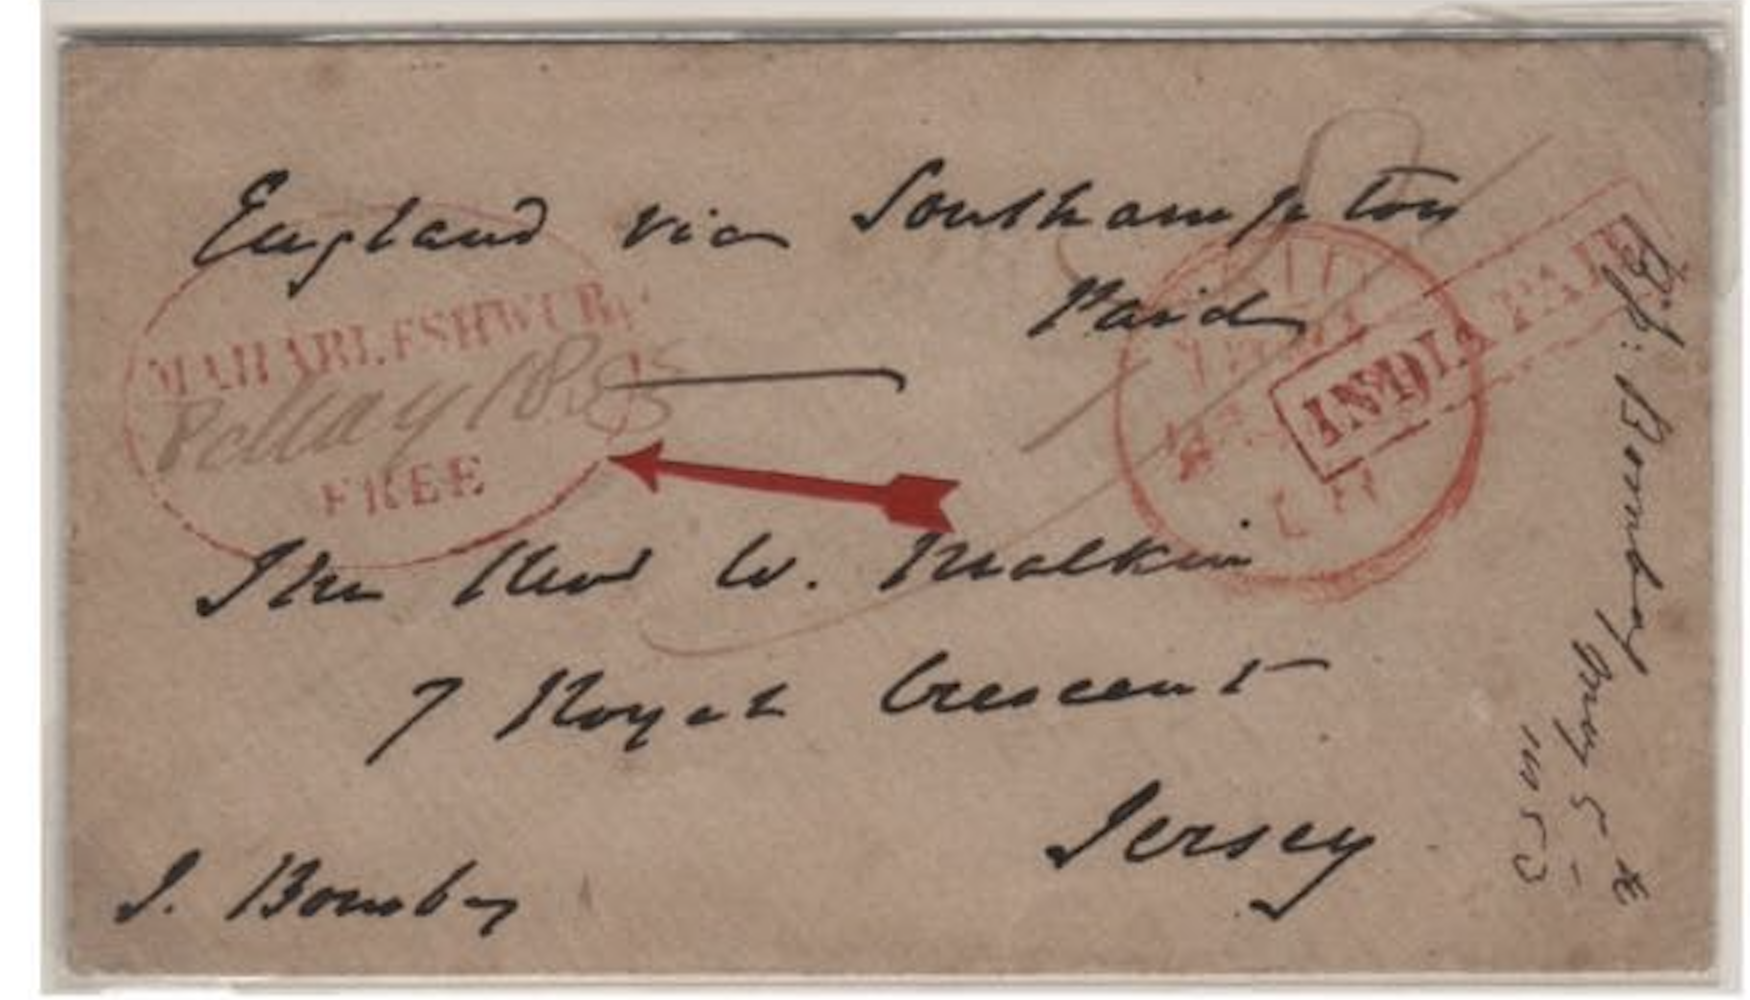 England via Southampton
Paid
MAHABLESHWUR
8 May 1855
FREE
INDIA PAID
The Revd W. Malkin
7 Royal Crescent
Jersey
J. Bombay
Bp. of Bombay
May 5